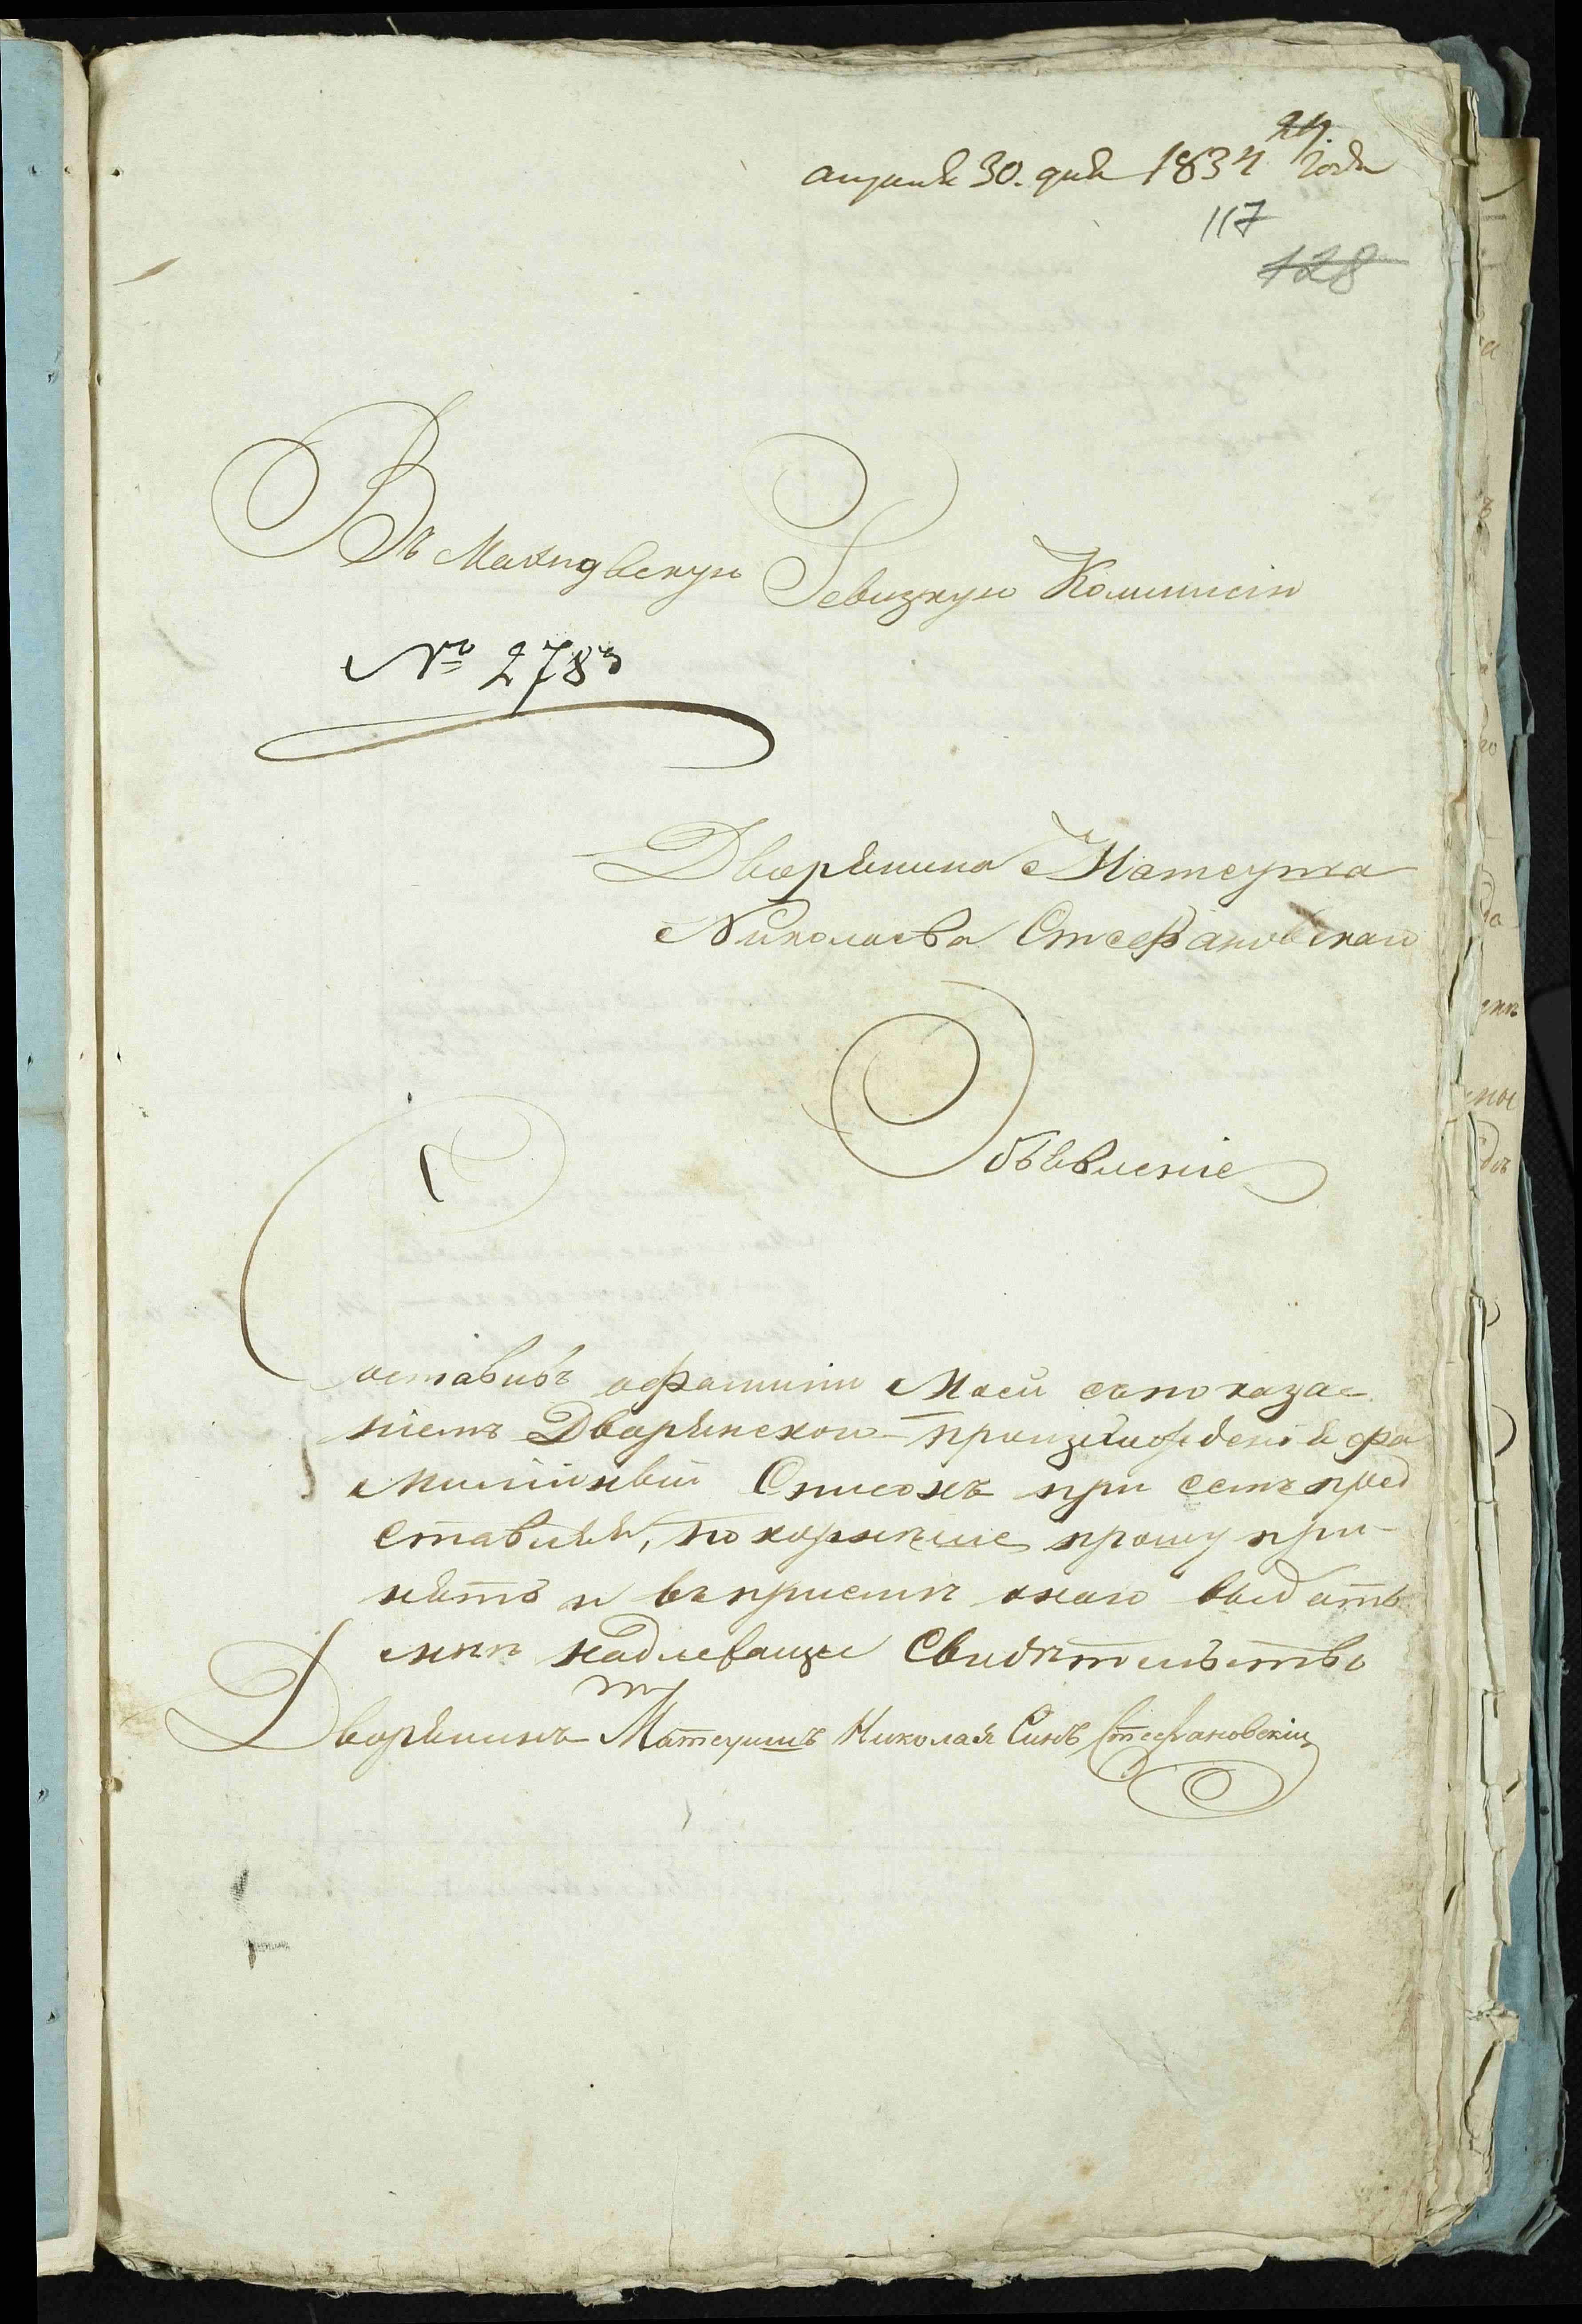 24.
апреля 30. дня 1834 года
117
128
Въ Ревизкую Коммисію
№ 2783
Дворянина Матеуша
Николаева Стефановскаго
Объявленіе
Составивъ офамиліи Моей съпоказа-
ніемъ Дворянскои произхожденія фа
милійный Списокъ при семъ пред
ставляя, покорнѣше прошу при-
нять и въпріемѣ онаго выдать
мнѣ надлежаще Свидѣтельство
Дворянинъ Матеушъ Николая Синъ Стефановскій